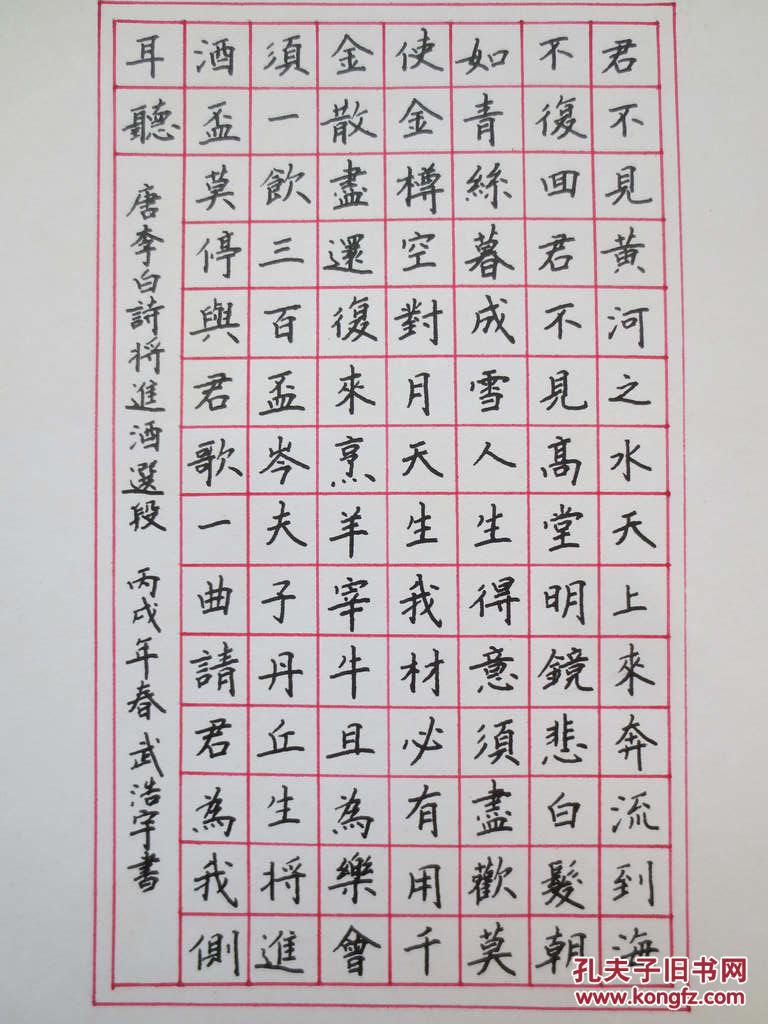 君不見黃河之水天上來奔流到海
不復回君不見高堂明鏡悲白髮朝
如青絲暮成雪人生得意須盡歡莫
使金樽空對月天生我材必有用千
金散盡還復來烹羊宰牛且為樂會
須一飲三百盃岑夫子丹丘生將進
酒盃莫停與君歌一曲請君為我側
耳聽
唐李白詩将進酒選段 丙戌年春武浩宇書
孔夫子旧书网
www.kongfz.com